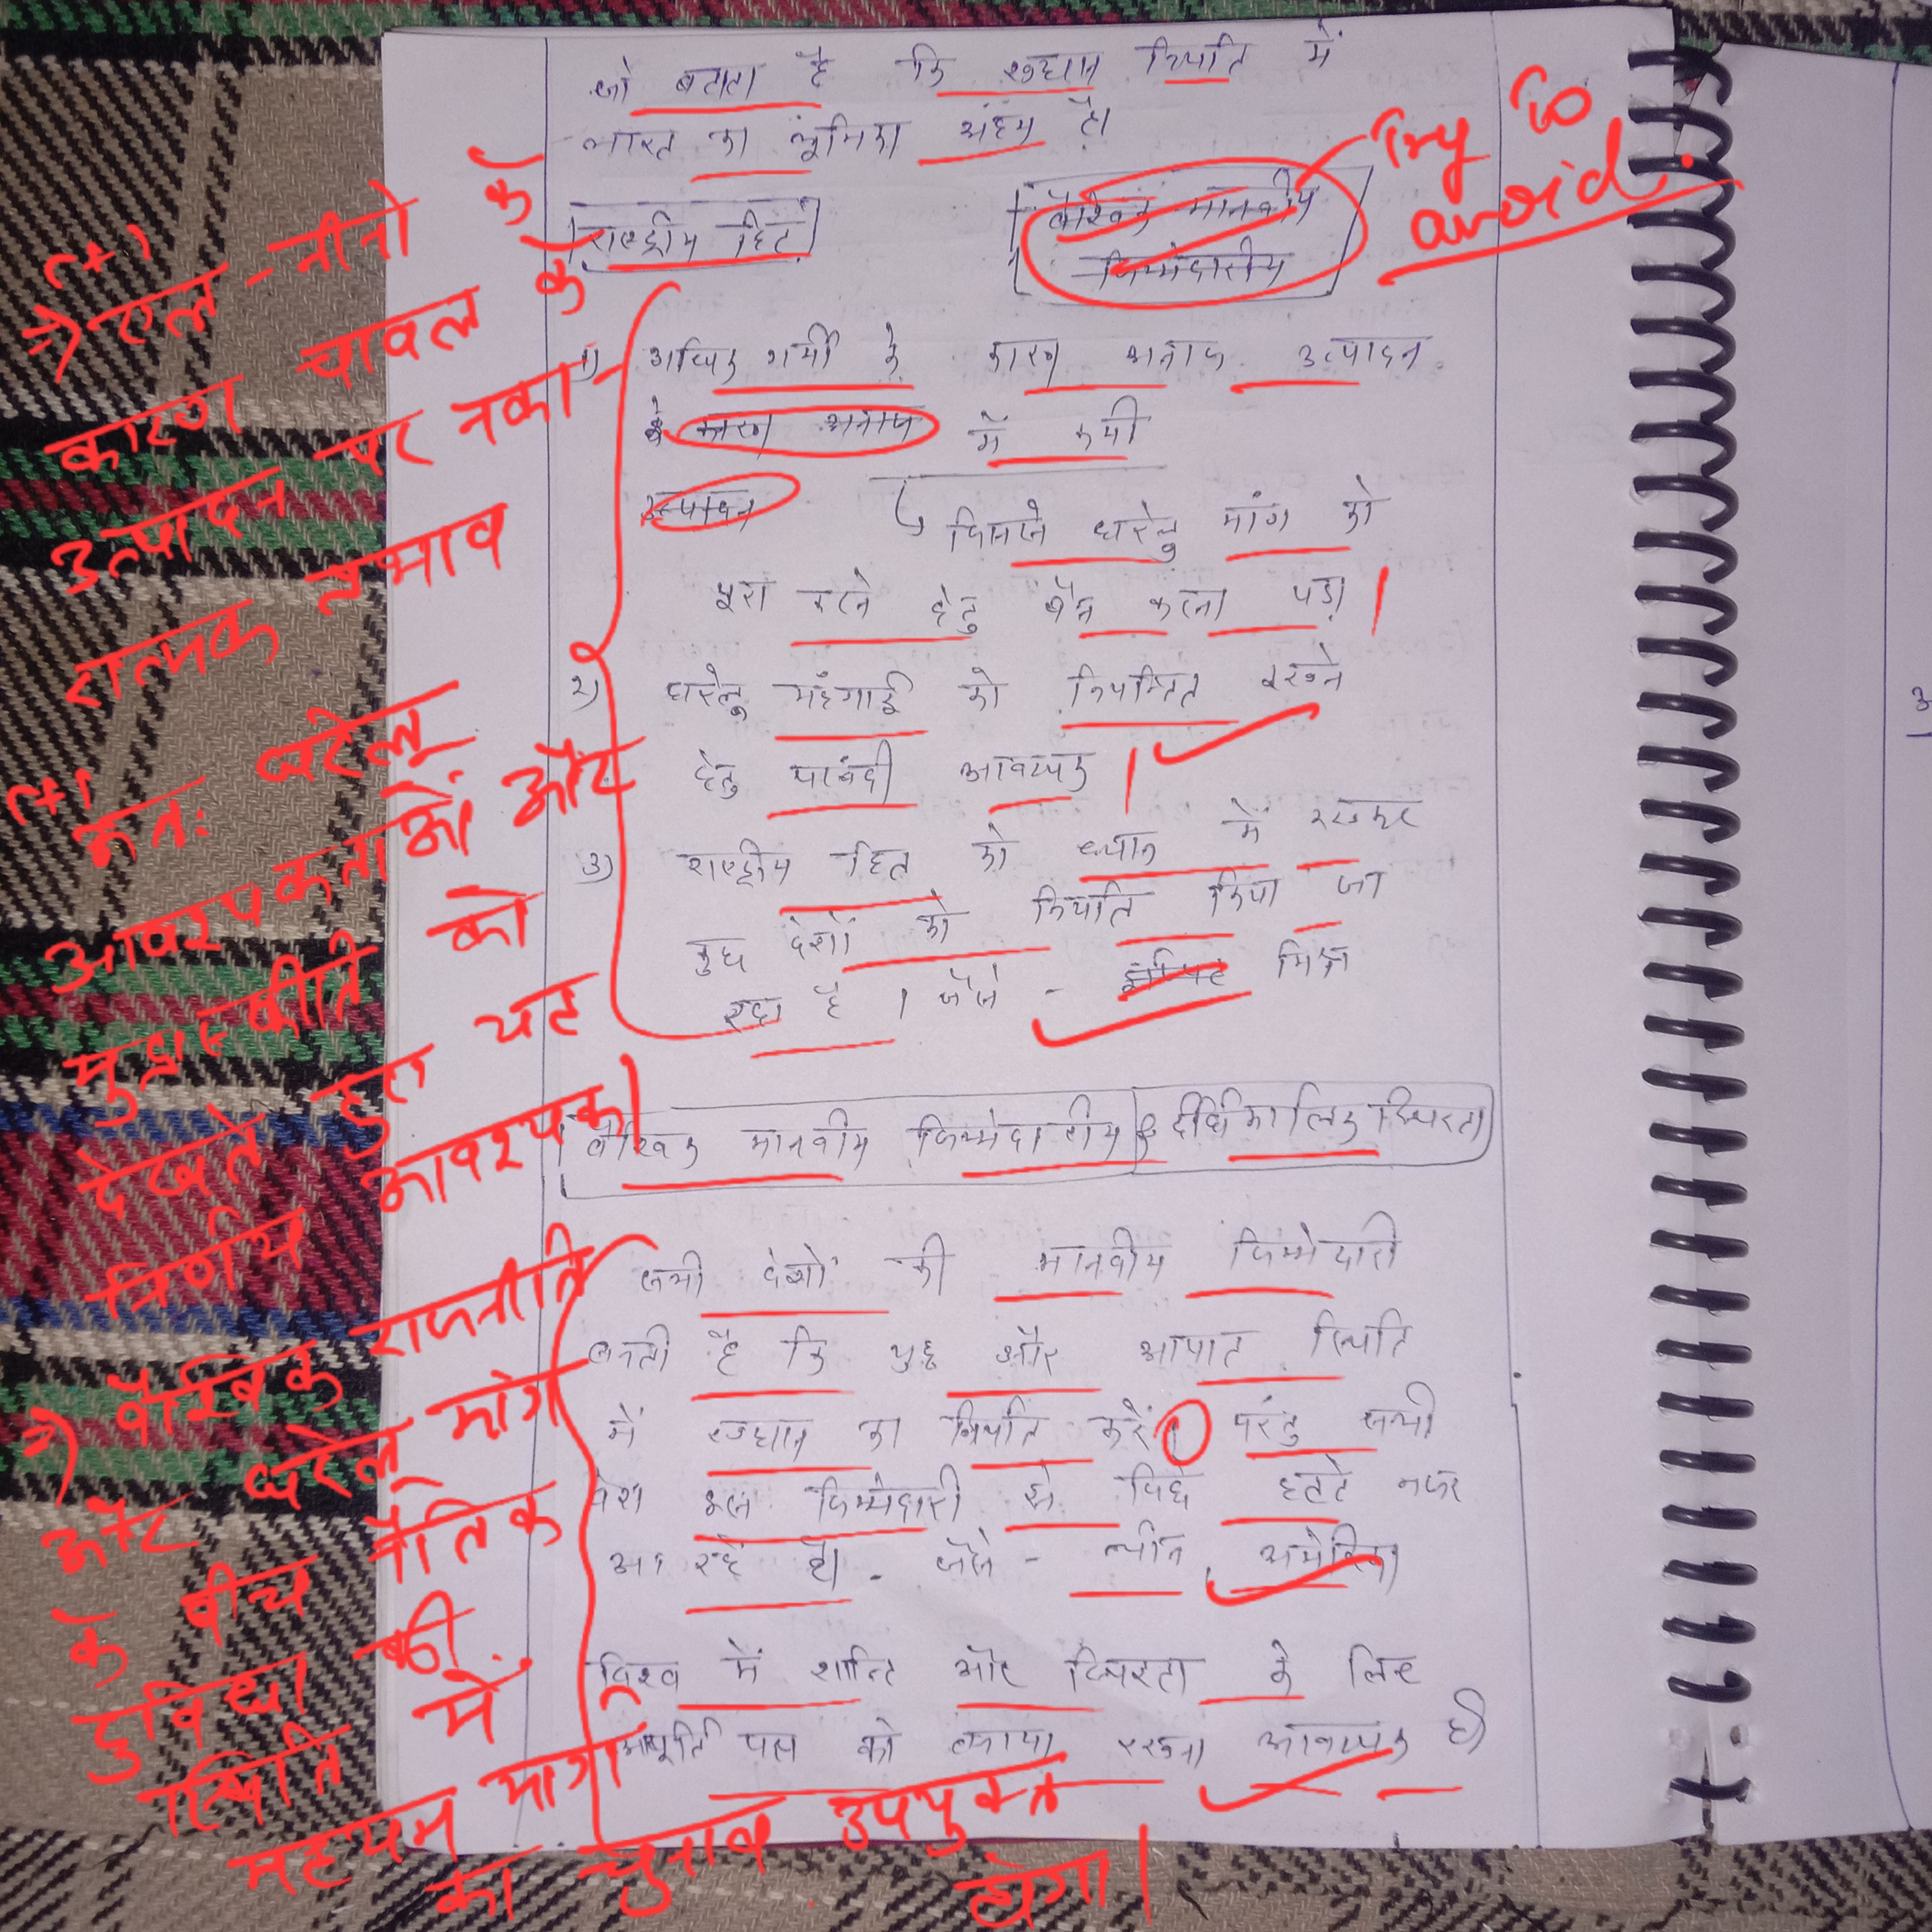 जो बताता है कि खाद्यान निर्यात में
भारत का भूमिका अहम है।
Try to
avoid.
राष्ट्रीय हित
वैश्विक मानवीय
जिम्मेदारीय
1) अधिक गर्मी के कारण अनाज उत्पादन
के कारण अनाज में कमी
उत्पादन
जिससे घरेलु मांग को
पूरा करने हेतु बैन करना पड़ा
2) घरेलु महंगाई को नियन्त्रित रखने
हेतु पाबंदी आवश्यक
3) राष्ट्रीय हित को ध्यान में रखकर
कुछ देशों को निर्यात किया जा
रहा है। जैसे - मिस्र
वैश्विक मानवीय जिम्मेदारीय & दीर्घकालिक स्थिरता
सभी देशों की मानवीय जिम्मेदारी
बनती है कि युद्ध और आपात स्थिति
में खाद्यान का निर्यात करें। परंतु सभी
देश इस जिम्मेदारी से पिछे हटते नजर
आ रहे है। - जैसे - चीन, अमेरिका
विश्व में शान्ति और स्थिरता के लिए
आपूर्ति पक्ष को बनाया रखना आवश्यक है।
⇒ एल-नीनो के
कारण चावल के
उत्पादन पर नका-
रात्मक प्रभाव
अतः घरेलू
आवश्यकताओं और
मुद्रास्फीति को
देखते हुए यह
निर्णय आवश्यक।
⇒ वैश्विक राजनीति
और घरेलू मांग
के बीच नैतिक
दुविधा की
स्थिति में
मध्यम मार्ग
का चुनाव उपयुक्त
होगा।